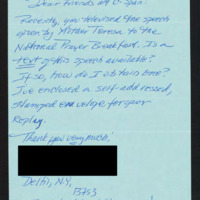 Dear Friends at C-Span:
Recently, you televised the speech
given by Mother Teresa to the
National Prayer Breakfast. Is a
text of this speech available?
If so, how do I obtain one?
I've enclosed a self addressed,
stamped envelope for your
Reply.
Thank you very much!
Delhi, N.Y.
13753